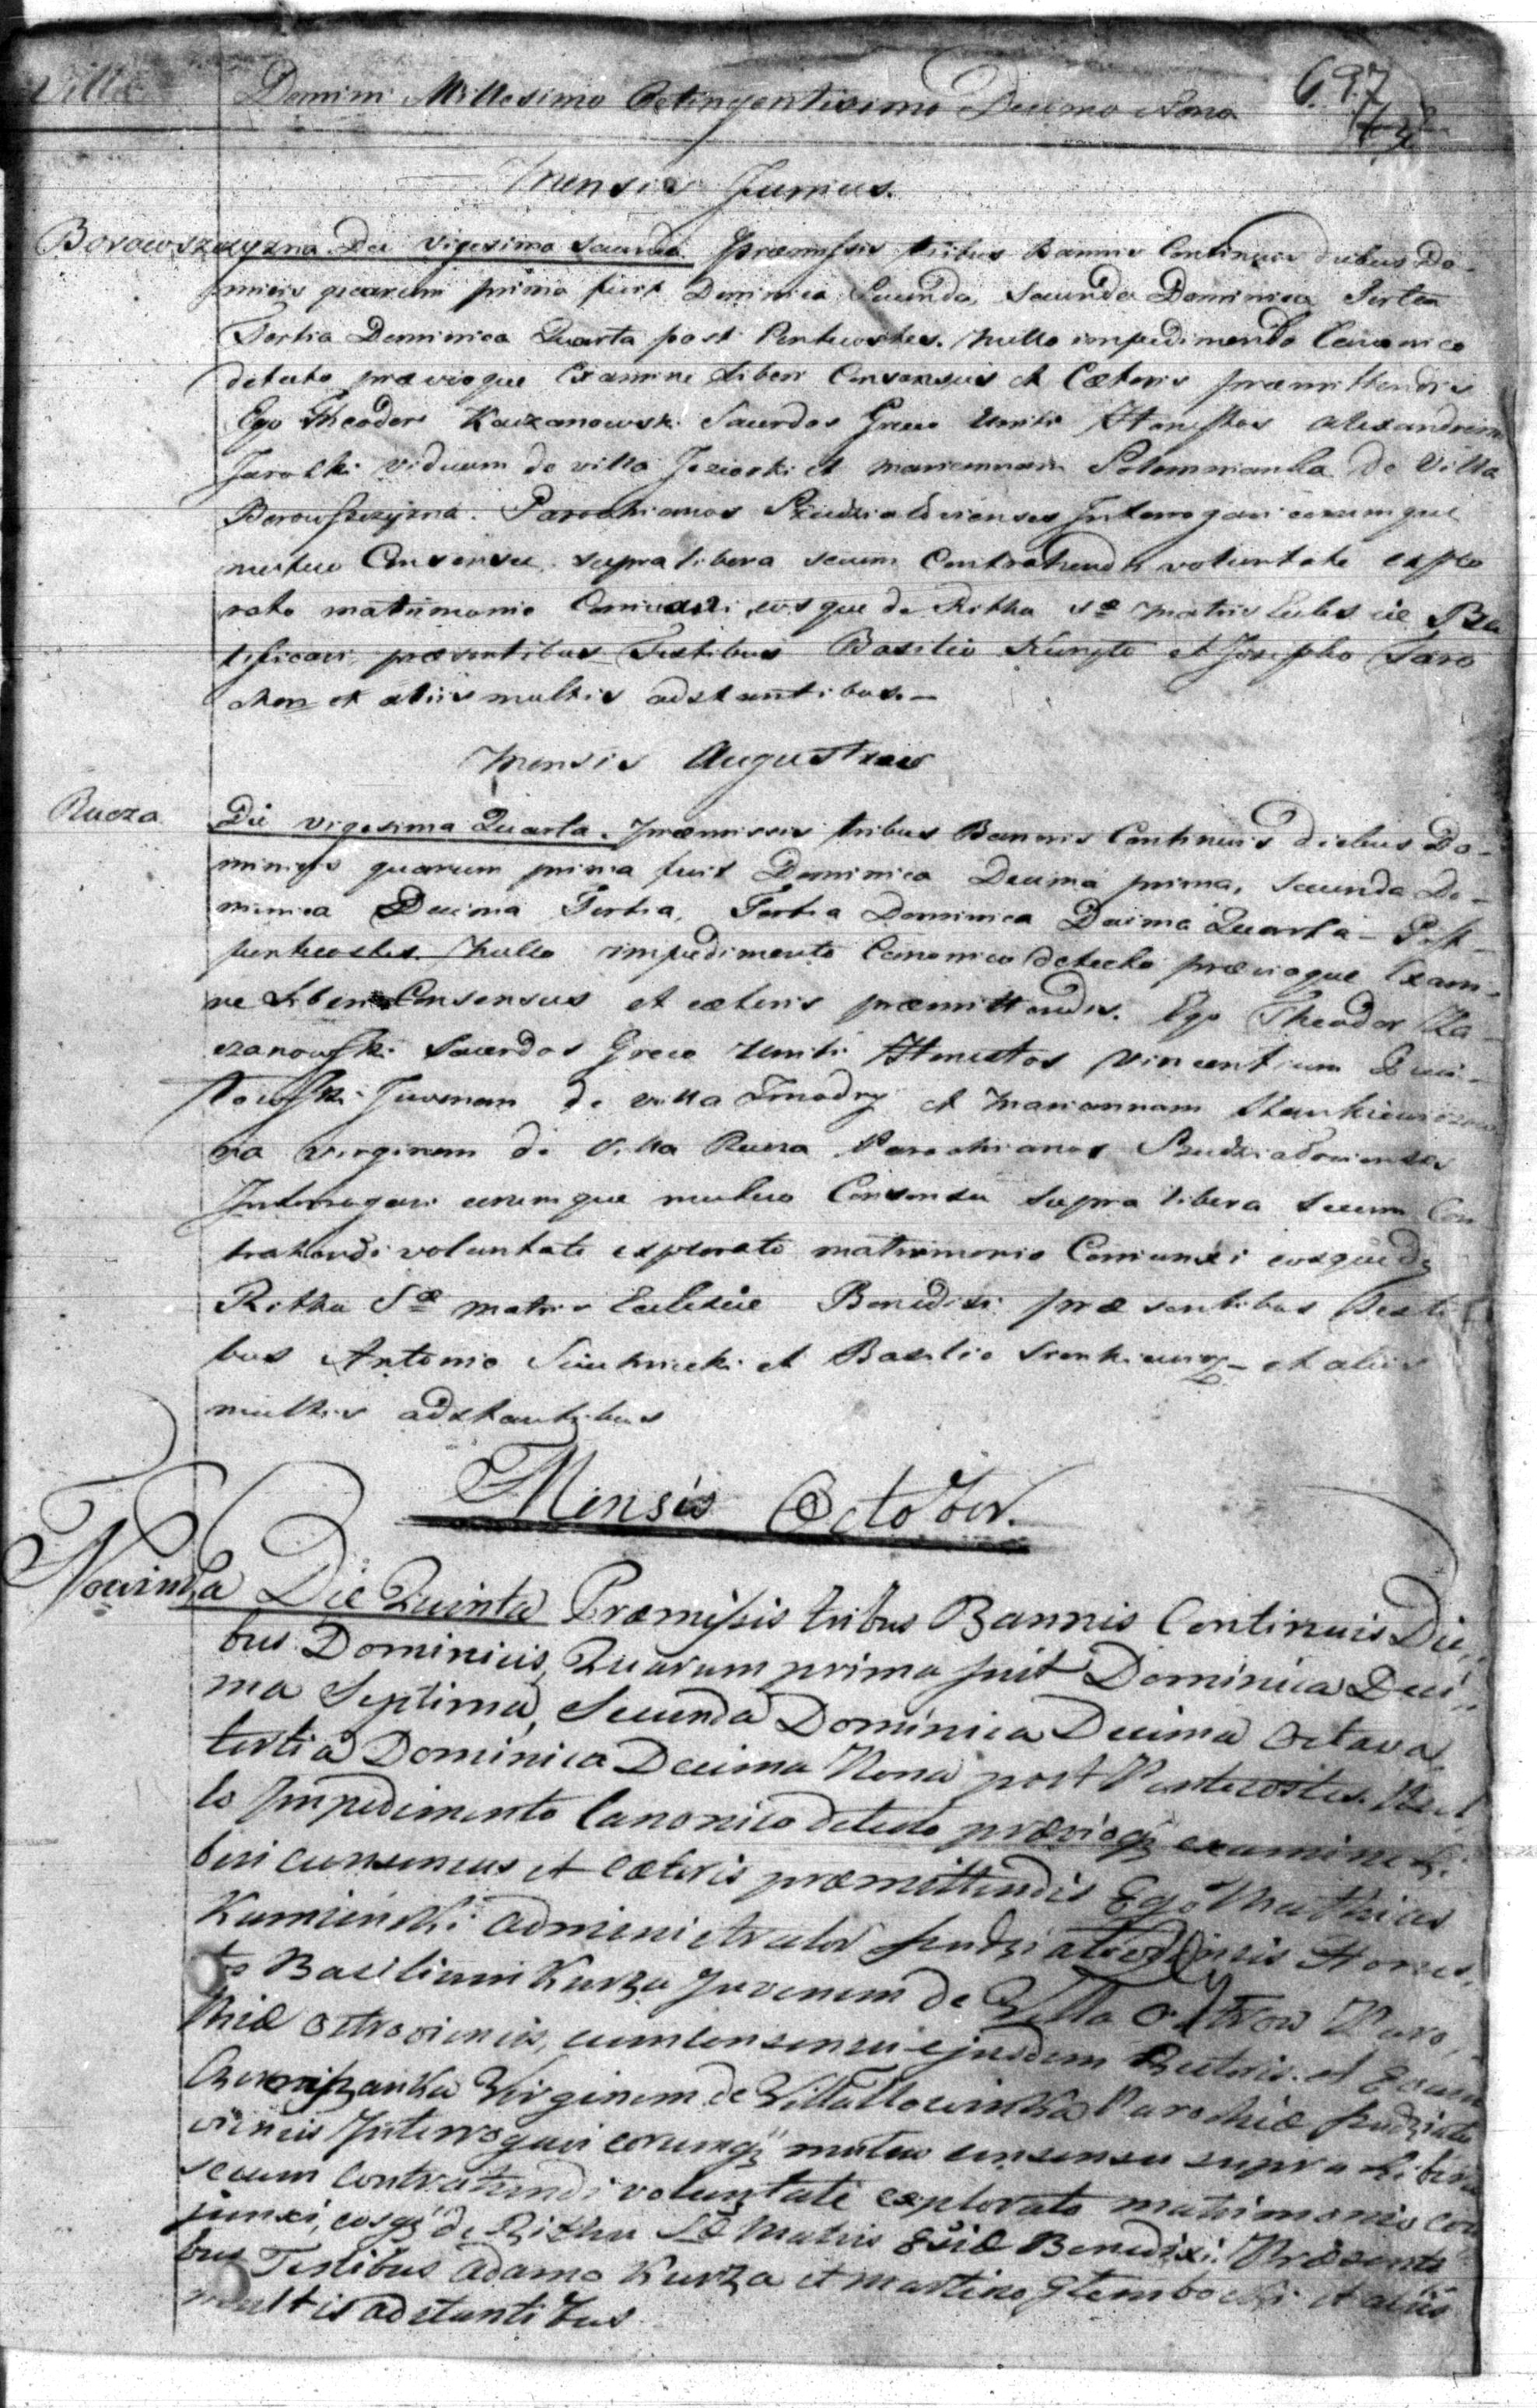 Villa Domini Millesimo Octingentesimo Decimo Nono 697
Mensis Junius.
Borowszczyzna Die vigesima Secunda Præmissis tribus Bannis Continuis diebus Do-
minicis quarum prima fuit Dominica Secunda, Secunda Dominica Tertia
Tertia Dominica Quarta post Pentecostes. Nullo impedimento Canonico
detecto prævioque Examine Liberi Consensus et Cæteris præmittendis
Ego Theodor Kaczanowski Sacerdos Greco Uniti Honestos Alexandrum
Jarocki viduum de villa Jeziorki et Mariannam de Villa
Borowszczyzna. Parochianos Interrogavi eorumque
mutuo Consensu, supra libera secum Contrahendi voluntate explo
rato matrimonio Coniunxi, eosque de Rithu Sæ Matris Eclesiæ
tificavi, præsentibus Testibus Basilio et Josepho Taro
et aliis multis adstantibus. -
Mensis Augustus
Rucza Die vigesima Quarta. Præmissis tribus Bannis Continuis diebus Do-
minicis quarum prima fuit Dominica Decima prima, Secunda Do-
minica Decima Tertia, Tertia Dominica Decima Quarta - Post
pentecostes Nullo impedimento Canonico detecto prævioque Exami-
ne Liberi Consensus et cæteris præmittendis. Ego Theodor Ka-
czanowski Sacerdos Greco Uniti Honestos Vincentium
Juvenem de villa et Mariannam
na virginem de Villa Rucza Parochianos
Interrogavi eorumque mutuo Consensu supra libera secum Con
trahendi voluntate explorato matrimonio Coniunxi eosque de
Rithu Sæ Matris Eclesiæ Benedixi præsentibus Testi
bus Antonio et Basilio et aliis
multis adstantibus
Mensis October.
Nowinka Die Quinta Præmissis tribus Bannis Continuis Die,,
bus Dominicis, Quarum prima fuit Dominica Deci,,
ma Septima, Secunda Dominica Decima Octava,
tertia Dominica Decima Nona post Pentecostes. Nul,
lo Impedimento Canonico detecto prævioq3 examine Li,
beri consensus et Cæteris præmittendis Ego Mathias
Kamiński Administrator Hones,
to Basilium Kurza Juvenem de Villa Ostrow Paro,
chiæ Ostroviensis, cum consensu ejusdem Rectoris. et
Virginem de Villa Nowinka Parochiæ
viensis Interrogavi eorumq3 mutuo consensu supra libera
secum contrahendi voluntate explorato matrimonio con
junxi, eosq3 de Rithu Sæ Matris Eccliæ Benedixi. Præsenti
bus Testibus Adamo Kurza et Martino et aliis
multis adstantibus